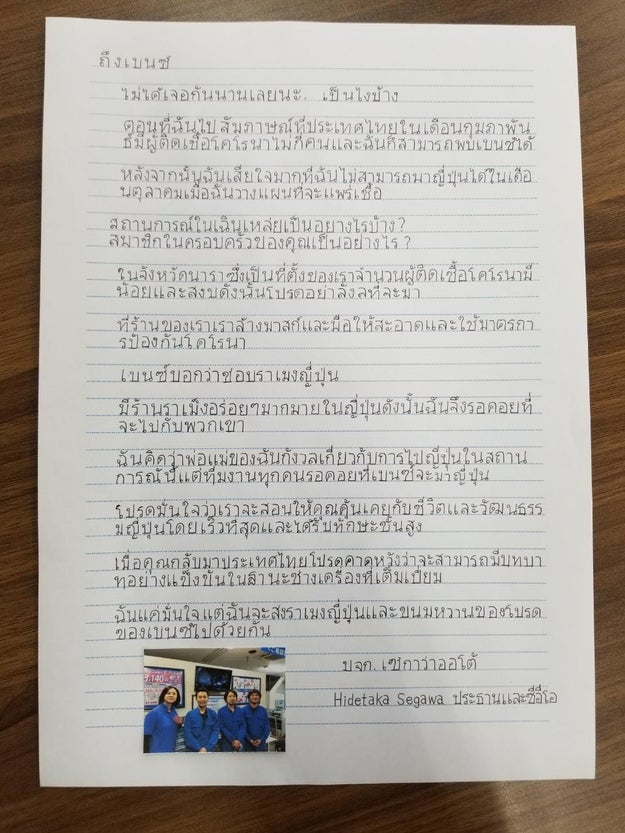 ถึงเบนซ์
ไม่ได้เจอกันนานเลยนะ. เป็นไงบ้าง
ตอนที่ฉันไปสัมภาษณ์ที่ประเทศไทยในเดือนกุมภาพัน
ธ์มีผู้ติดเชื้อโคโรนาไม่กี่คนและฉันก็สามารถพบเบนซ์ได้
หลังจากนั้นฉันเสียใจมากที่ฉันไม่สามารถมาญี่ปุ่นได้ในเดือ
นตุลาคมเมื่อฉันวางแผนที่จะแพร่เชื้อ
สถานการณ์ในเฉินเหล่ยเป็นอย่างไรบ้าง?
สมาชิกในครอบครัวของคุณเป็นอย่างไร?
ในจังหวัดนาราซึ่งเป็นที่ตั้งของเราจำนวนผู้ติดเชื้อโคโรนามี
น้อยและสงบดังนั้นโปรดอย่าลังลที่จะมา
ที่ร้านของเราเราล้างมาสก์และมือให้สะอาดและใช้มาตรกา
รป้องกันโคโรนา
เบนซ์บอกว่าชอบราเมงญี่ปุ่น
มีร้านราเม็งอร่อยๆมากมายในญี่ปุ่นดังนั้นฉันจึงรอคอยที่
จะไปกับพวกเขา
ฉันคิดว่าพ่อแม่ของฉันกังวลเกี่ยวกับการไปญี่ปุ่นในสถาน
การณ์นี้แต่ทีมงานทุกคนรอคอยที่เบนซ์จะมาญี่ปุ่น
โปรดมั่นใจว่าเราจะสอนให้คุณคุ้นเคยกับชีวิตและวัฒนธรร
มญี่ปุ่นโดยเร็วที่สุดและได้รับทักษะขั้นสูง
เมื่อคุณกลับมาประเทศไทยโปรดคาดหวังว่าจะสามารถมีบทบา
ทอย่างแข็งขันในฐานะช่างเครื่องที่เต็มเปี่ยม
ฉันแค่มั่นใจแต่ฉันจะส่งราเมงญี่ปุ่นและขนมหวานของโปรด
ของเบนซ์ไปด้วยกัน
บจก. เซกาว่าออโต้
Hidetaka Segawa ประธานและซีอีโอ